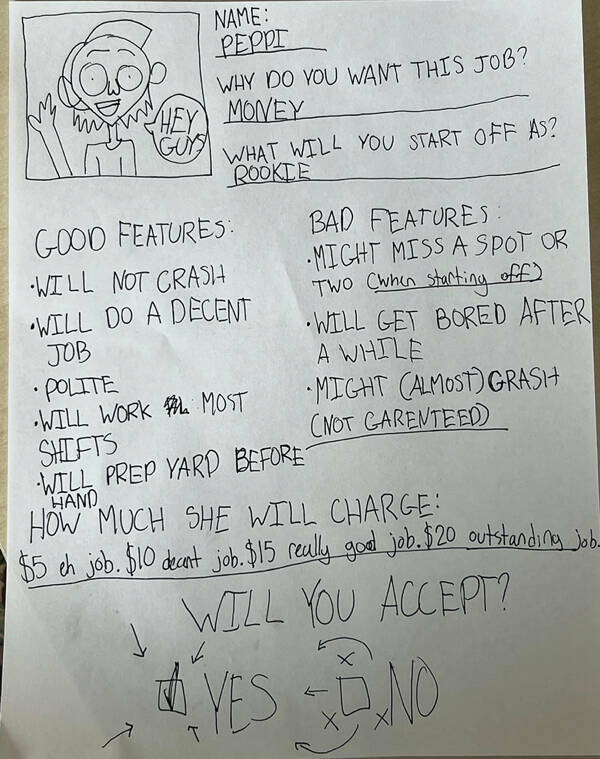 NAME:
PEPPI
WHY DO YOU WANT THIS JOB?
MONEY
WHAT WILL YOU START OFF AS?
ROOKIE
HEY
GUYS
GOOD FEATURES:
·WILL NOT CRASH
·WILL DO A DECENT
JOB
·POLITE
·WILL WORK MOST
SHIFTS
·WILL PREP YARD BEFORE
HAND
BAD FEATURES:
·MIGHT MISS A SPOT OR
TWO (when starting off)
·WILL GET BORED AFTER
A WHILE
·MIGHT (ALMOST) GRASH
(NOT GARENTEED)
HOW MUCH SHE WILL CHARGE:
$5 eh job. $10 decent job. $15 really good job. $20 outstanding job.
WILL YOU ACCEPT?
YES
NO